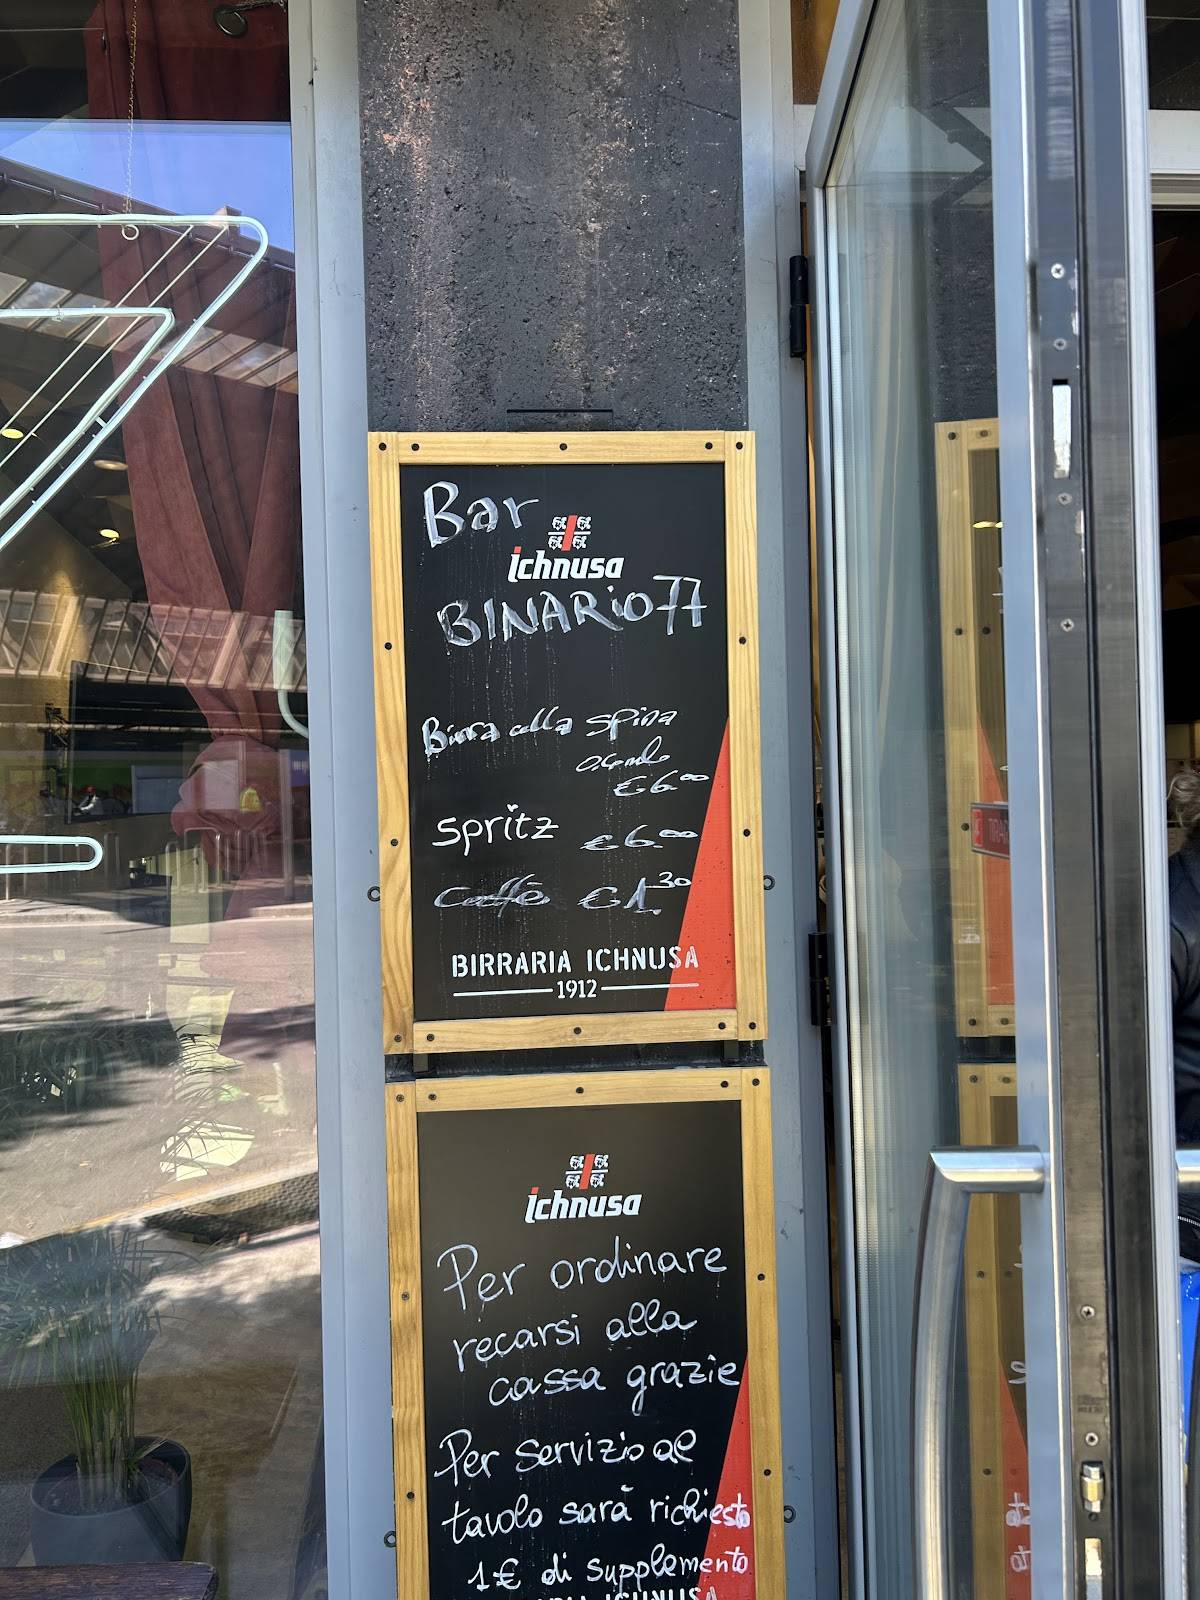 Bar
ichnusa
BINARIO 77
Birra alla spina
€6.00
Spritz €6.00
Caffè €1.30
BIRRARIA ICHNUSA
1912
ichnusa
Per ordinare
recarsi alla
cassa grazie
Per servizio al
tavolo sarà richiesto
1€ di supplemento